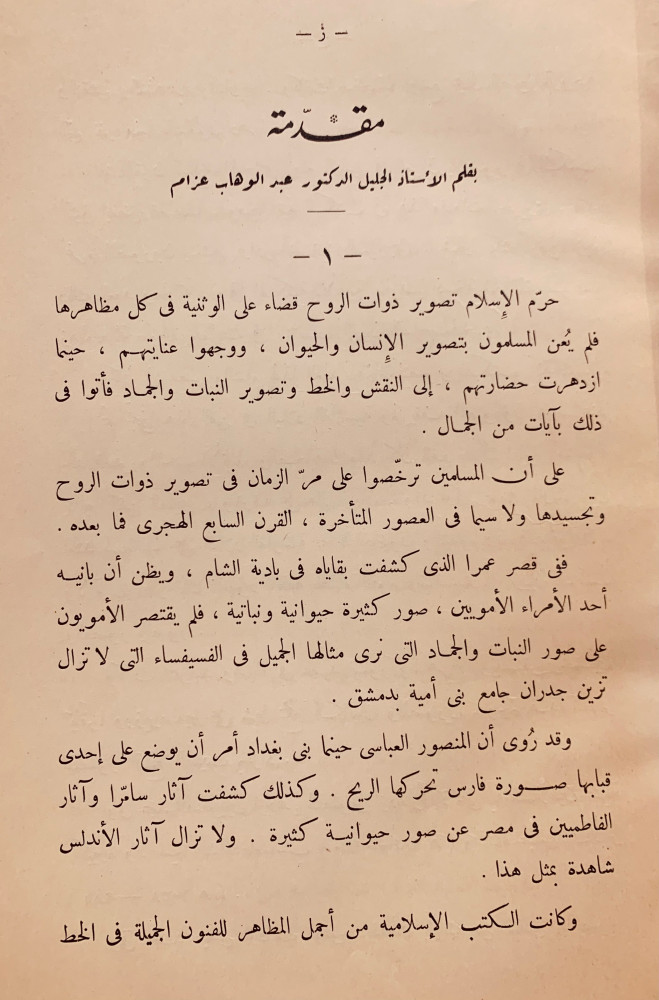 — ز —
مقدّمة
بقلم الأستاذ الجليل الدكتور عبد الوهاب عزام
— ١ —
حرّم الإسلام تصوير ذوات الروح قضاء على الوثنية فى كل مظاهرها
فلم يُعن المسلمون بتصوير الإنسان والحيوان ، ووجهوا عنايتهم ، حينما
ازدهرت حضارتهم ، إلى النقش والخط وتصوير النبات والجماد فأتوا فى
ذلك بآيات من الجمال .
على أن المسلمين ترخّصوا على مرّ الزمان فى تصوير ذوات الروح
وتجسيدها ولا سيما فى العصور المتأخرة ، القرن السابع الهجرى فما بعده .
ففى قصر عمرا الذى كشفت بقاياه فى بادية الشام ، ويظن أن بانيه
أحد الأمراء الأمويين ، صور كثيرة حيوانية ونباتية ، فلم يقتصر الأمويون
على صور النبات والجماد التى نرى مثالها الجميل فى الفسيفساء التى لا تزال
تزين جدران جامع بنى أمية بدمشق .
وقد رُوى أن المنصور العباسى حينما بنى بغداد أمر أن يوضع على إحدى
قبابها صورة فارس تحركها الريح . وكذلك كشفت آثار سامرّا وآثار
الفاطميين فى مصر عن صور حيوانية كثيرة . ولا تزال آثار الأندلس
شاهدة بمثل هذا .
وكانت الكتب الإسلامية من أجمل المظاهر للفنون الجميلة فى الخط